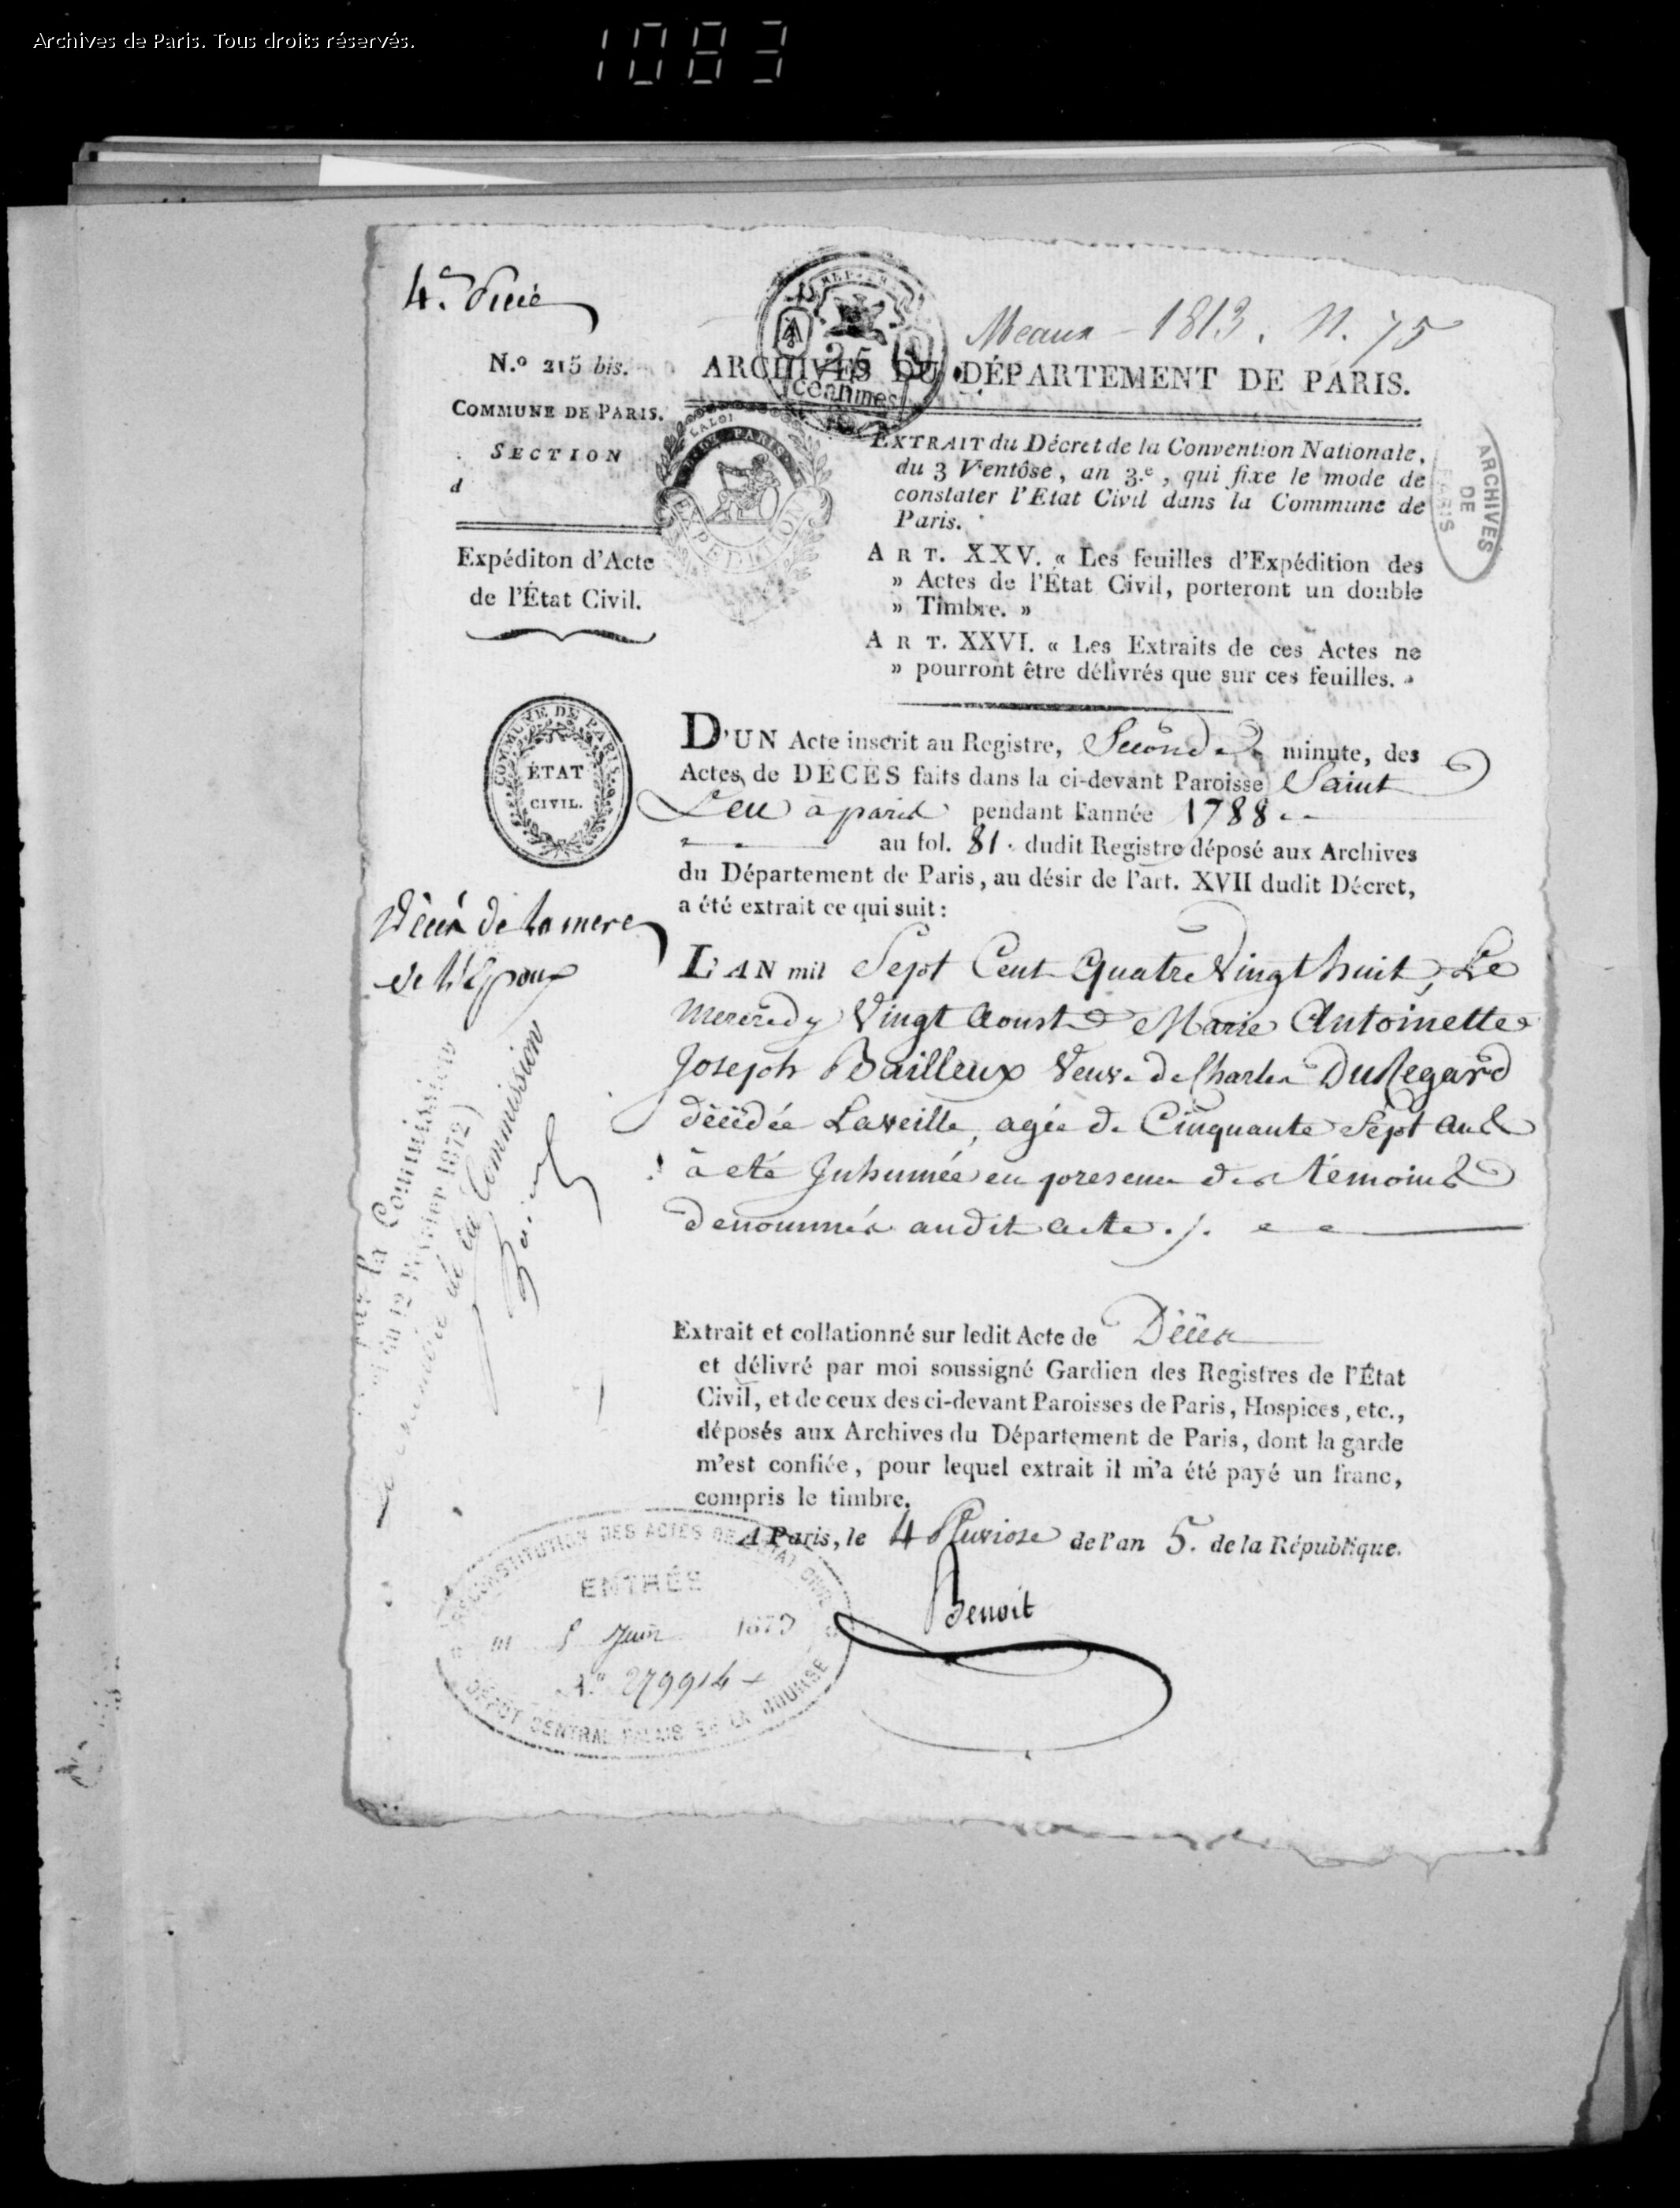 Archives de Paris. Tous droits réservés.
1083
4e. Piece
Meaux - 1813. N. 75
N.º 215 bis.
COMMUNE DE PARIS.
SECTION
d
Expéditon d'Acte
de l'État Civil.
25
centimes
ARCHIVES DU DÉPARTEMENT DE PARIS.
LA LOI
EXPÉDITION
EXTRAIT du Décret de la Convention Nationale,
du 3 Ventôse, an 3.e, qui fixe le mode de
constater l'Etat Civil dans la Commune de
Paris.
ART. XXV. « Les feuilles d'Expédition des
» Actes de l'État Civil, porteront un double
» Timbre. »
ART. XXVI. « Les Extraits de ces Actes ne
» pourront être délivrés que sur ces feuilles. »
ARCHIVES
DE
PARIS
COMMUNE DE PARIS
ÉTAT
CIVIL.
D'UN Acte inscrit au Registre, Seconde minute, des
Actes de DÉCÈS faits dans la ci-devant Paroisse Saint
Leu à paris pendant l'année 1788.
au fol. 81. dudit Registre déposé aux Archives
du Département de Paris, au désir de l'art. XVII dudit Décret,
a été extrait ce qui suit :
Décès de la mere
de l'Epoux
L'AN mil Sept Cent Quatre Vingt huit, Le
Mercredy Vingt Aoust Marie Antoinette
Joseph Bailleux Veuve de Charles DuRegard
décédée La veille, agée de Cinquante Sept ans
à eté Inhumée en presence des témoins
denommés audit acte ./.
la Commission
1872)
de la Commission
Extrait et collationné sur ledit Acte de Décès
et délivré par moi soussigné Gardien des Registres de l'État
Civil, et de ceux des ci-devant Paroisses de Paris, Hospices, etc.,
déposés aux Archives du Département de Paris, dont la garde
m'est confiée, pour lequel extrait il m'a été payé un franc,
compris le timbre.
A Paris, le 4 Pluviose de l'an 5. de la République.
Benoit
RECONSTITUTION DES ACTES DE L'ÉTAT CIVIL
ENTRÉE
Juin 1873
N.º 279914
DÉPOT CENTRAL PALAIS DE LA BOURSE